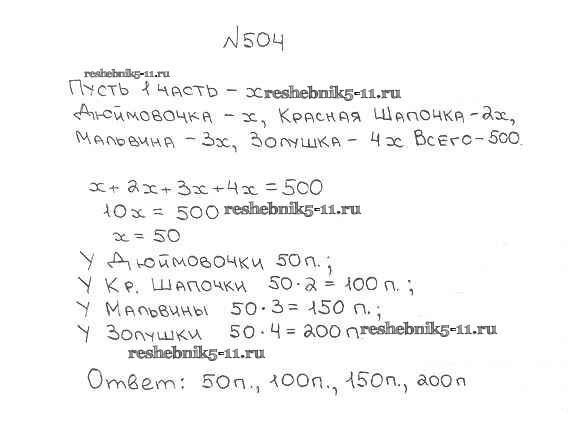 №504
reshebnik5-11.ru
Пусть 1 часть – x reshebnik5-11.ru
Дюймовочка – x, Красная Шапочка – 2x,
Мальвина – 3x, Золушка – 4x Всего – 500.
x + 2x + 3x + 4x = 500
10x = 500 reshebnik5-11.ru
x = 50
У Дюймовочки 50 п.;
У Кр. Шапочки 50 · 2 = 100 п.;
У Мальвины 50 · 3 = 150 п.;
У Золушки 50 · 4 = 200 п reshebnik5-11.ru
reshebnik5-11.ru
Ответ: 50п., 100п., 150п., 200п